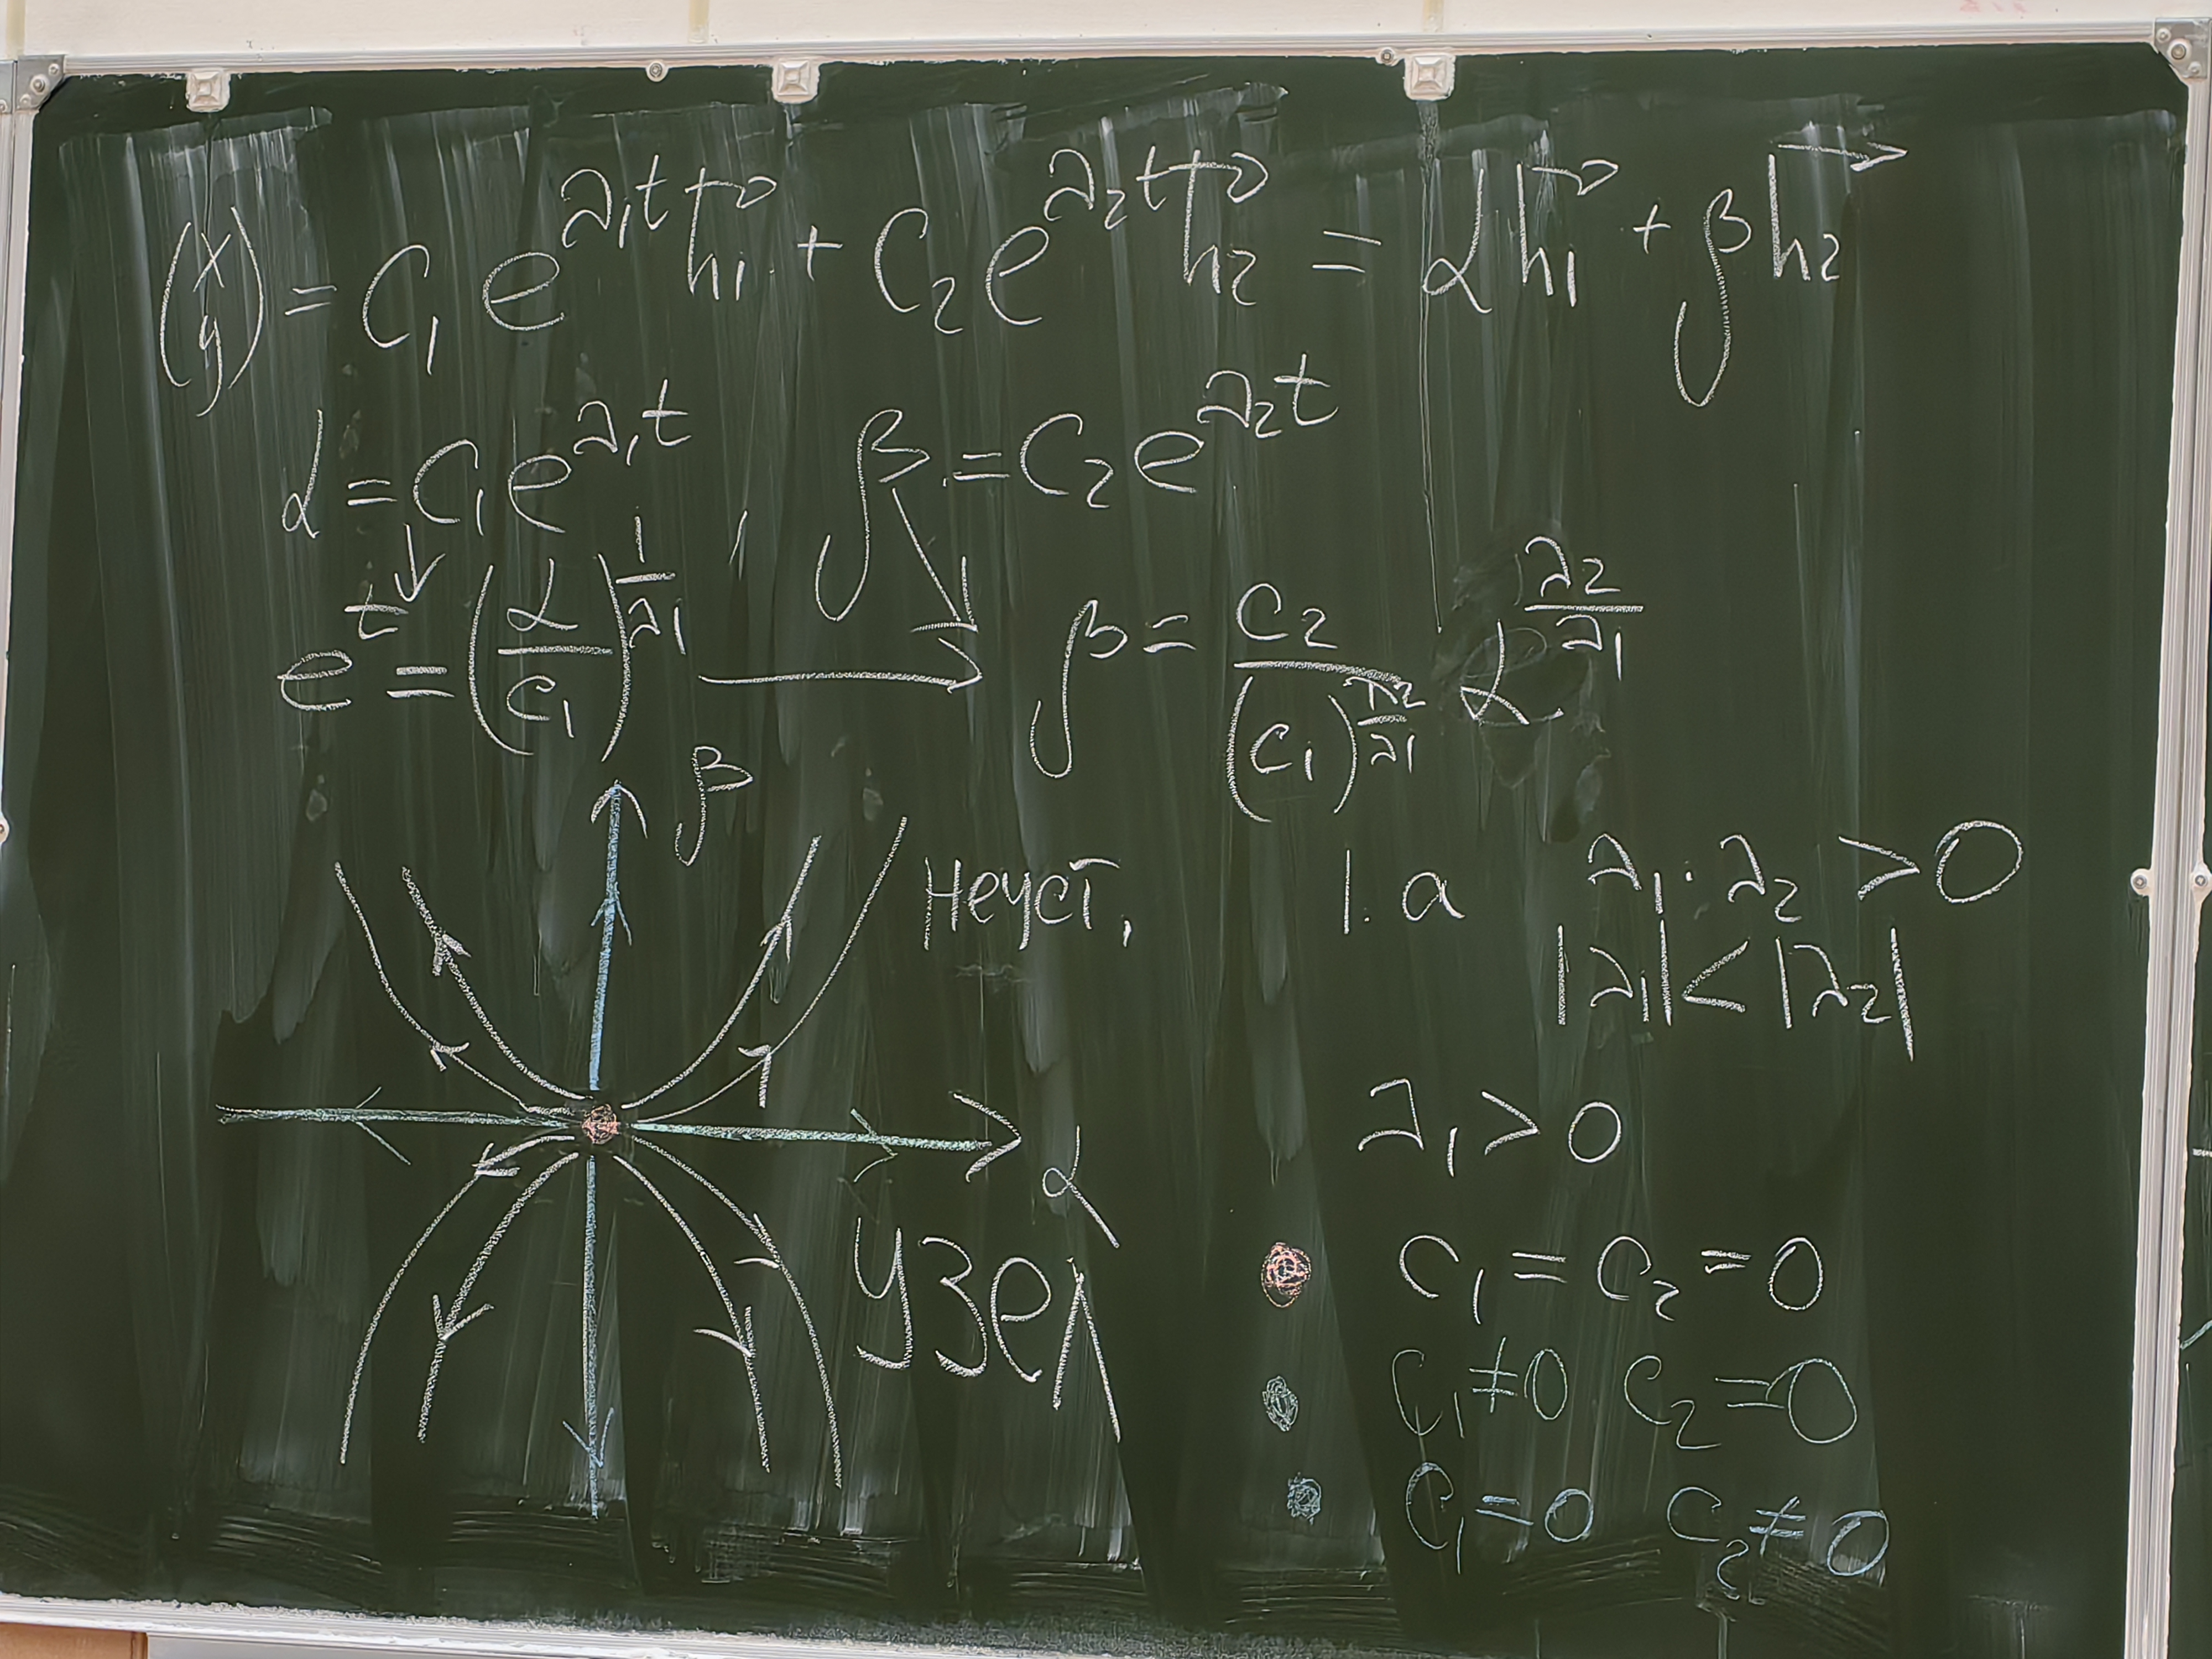 (x y) = C₁ e^{λ₁t} h₁⃗ + C₂ e^{λ₂t} h₂⃗ = α h₁⃗ + β h₂⃗
α = C₁ e^{λ₁t} , β = C₂ e^{λ₂t}
e^t = (α/C₁)^{1/λ₁} → β = C₂/(C₁)^{λ₂/λ₁} α^{λ₂/λ₁}
β
Неуст.
1. а λ₁·λ₂ > 0
|λ₁| < |λ₂|
λ₁ > 0
α
узел
C₁ = C₂ = 0
C₁ ≠ 0 C₂ = 0
C₁ = 0 C₂ ≠ 0